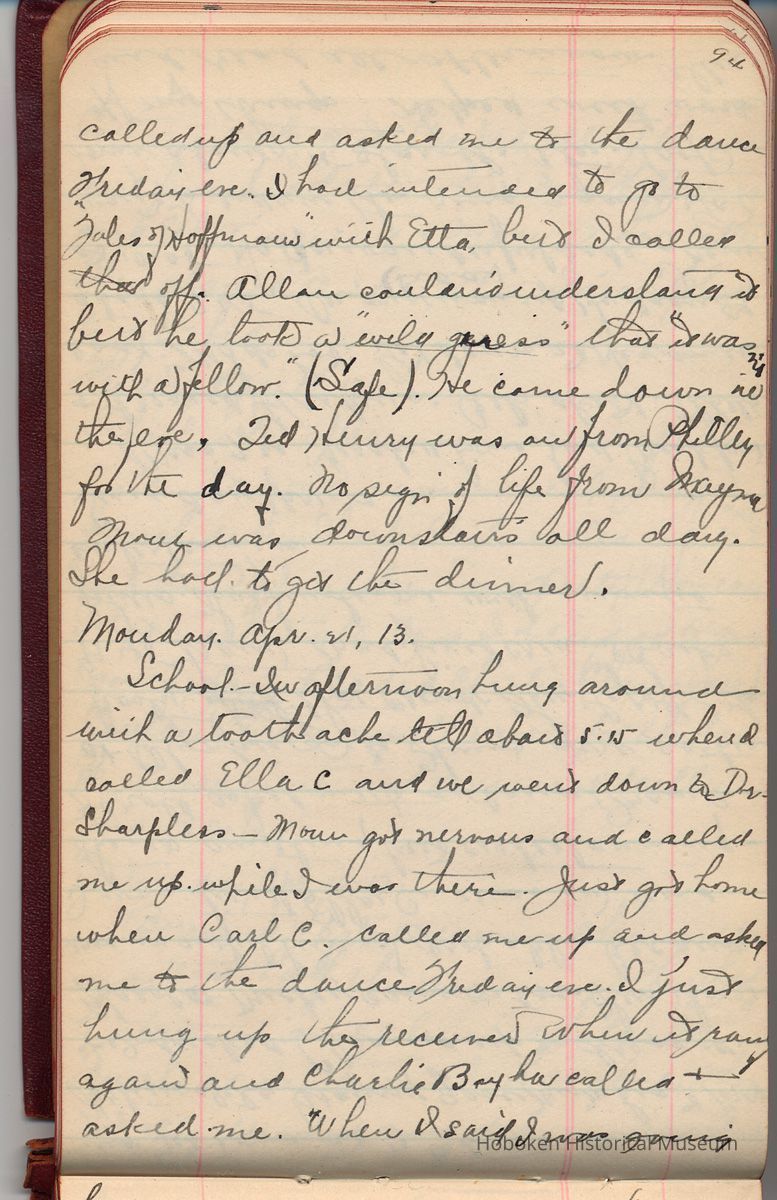 94
called up and asked me to the dance
Friday eve. I had intended to go to
"Tales of Hoffman" with Etta, but I called
that off. Allan couldn't understand it
but he took a "wild guess" that "it was
with a fellow." (Safe). He came down in
the eve. Ted Henry was on from Philley
for the day. No sign of life from
Mom was downstairs all day.
She had to get the dinner.
Monday. Apr. 21, 13.
School.- In afternoon hung around
with a toothache till about 5.15 when I
called Ella C and we went down to Dr.
Sharpless - Mom got nervous and called
me up while I was there. Just got home
when Carl C. called me up and asked
me to the dance Friday eve. I just
hung up the receiver when it rang
again and Charlie called +
asked me. When I said I was going
Hoboken Historical Museum